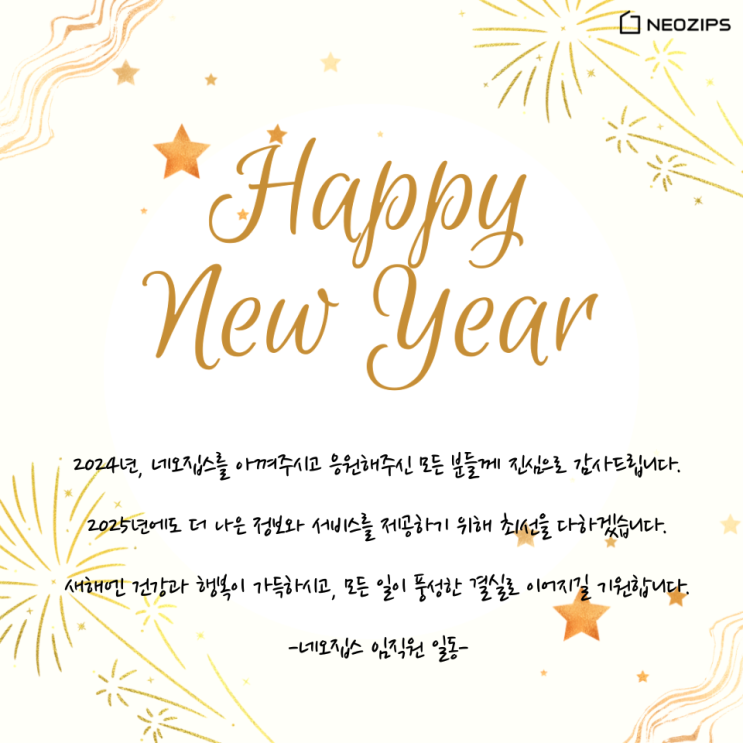 NEOZIPS
Happy
New Year
2024년, 네오집스를 아껴주시고 응원해주신 모든 분들께 진심으로 감사드립니다.
2025년에도 더 나은 정보와 서비스를 제공하기 위해 최선을 다하겠습니다.
새해엔 건강과 행복이 가득하시고, 모든 일이 풍성한 결실로 이어지길 기원합니다.
-네오집스 임직원 일동-